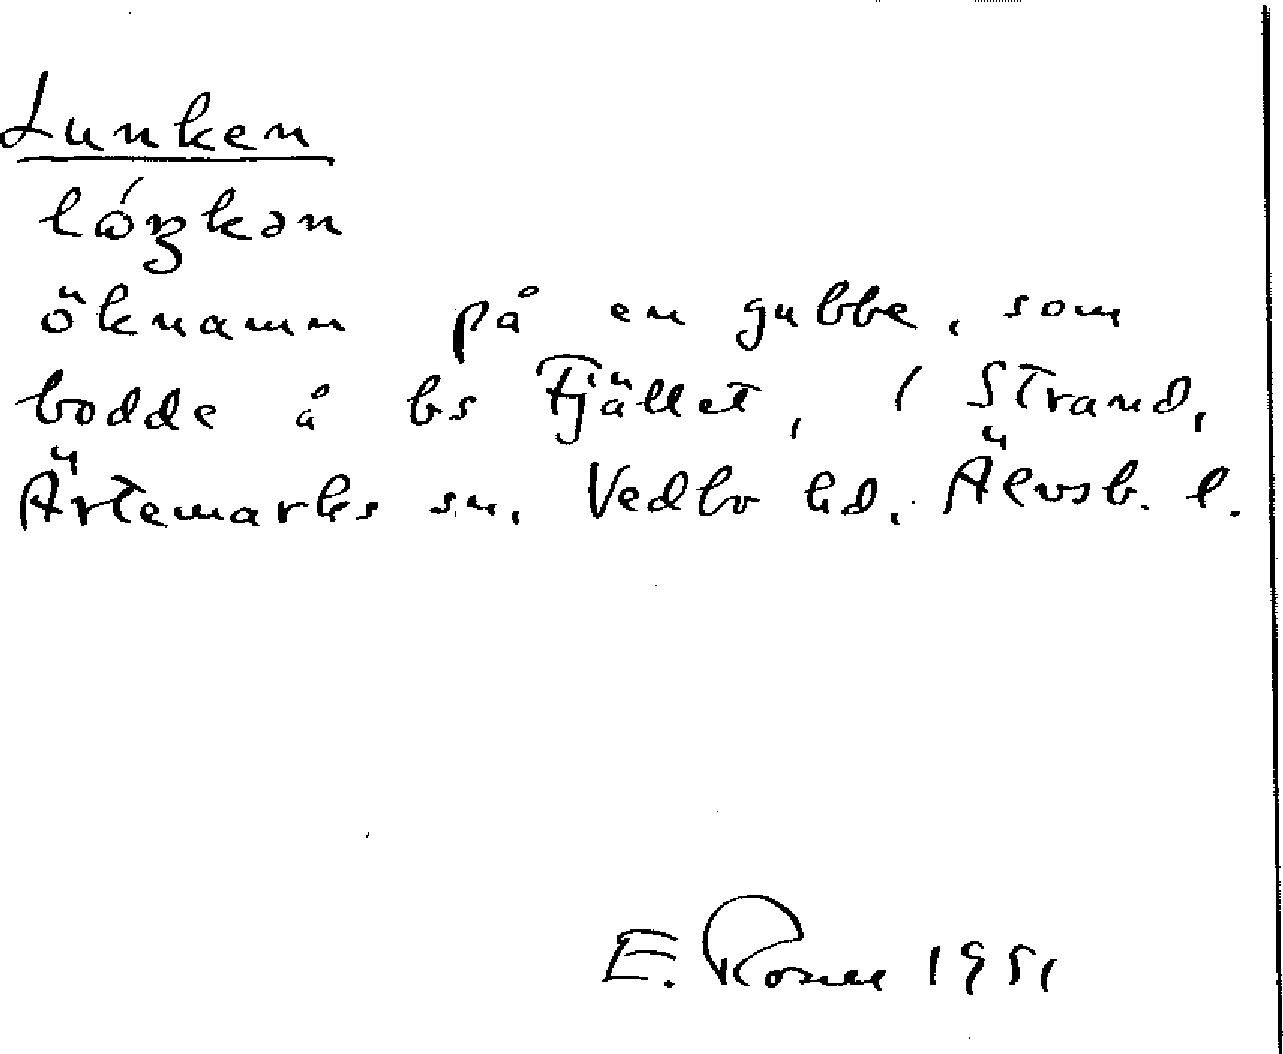 Lunken
öknamn på en gubbe, som
bodde å bs Fjället, 1 Strand,
Ärtemarks sn, Vedbo hd. Älvsb. l.
E. 1951